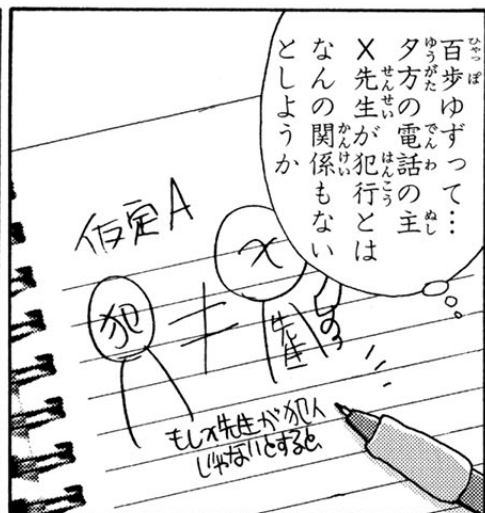 百歩ゆずって…
夕方の電話の主
X先生が犯行とは
なんの関係もない
としようか
仮定A
犯
≠
x
先生
もしx先生が犯人
じゃないとすると、